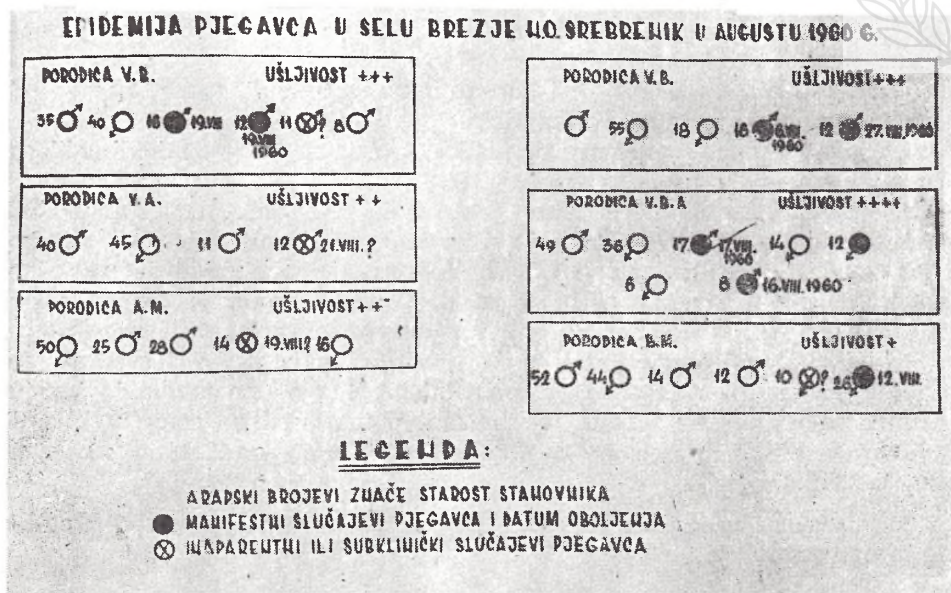 EPIDEMIJA PJEGAVCA U SELU BREZJE N.O. SREBRENIK U AUGUSTU 1960 G.
PORODICA V.B. UŠLJIVOST +++
35 40 16 19.VIII 12 11 ? 8
19.VIII
1960
PORODICA V.A. UŠLJIVOST ++
40 45 11 12 21.VIII.?
PORODICA A.M. UŠLJIVOST ++
50 25 28 14 19.VIII? 16
PORODICA V.B. UŠLJIVOST +++
55 18 16 6.VIII. 12 27.VIII.1960
1960
PORODICA V.B.A UŠLJIVOST ++++
49 36 17 17.VIII. 14 12
1960
6 8 16.VIII.1960
PORODICA B.M. UŠLJIVOST +
52 44 14 12 10 ? 26 12.VIII.
LEGENDA:
ARAPSKI BROJEVI ZNAČE STAROST STANOVNIKA
MANIFESTNI SLUČAJEVI PJEGAVCA I DATUM OBOLJENJA
INAPARENTNI ILI SUBKLINIČKI SLUČAJEVI PJEGAVCA